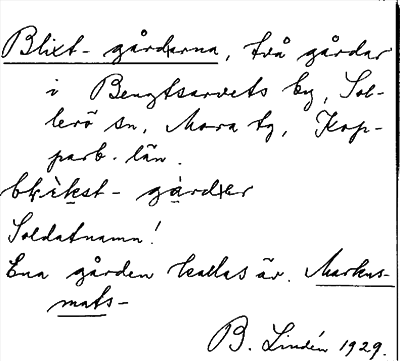 Blixt-gårdarna, två gårdar
i Bengtsarvets by, Sol-
lerö sn, Mora tg, Kop-
parb. län.
blikst-gårder
Soldatnamn!
Ena gården kallas är. Markus-
mats-
B. Lindén 1929.